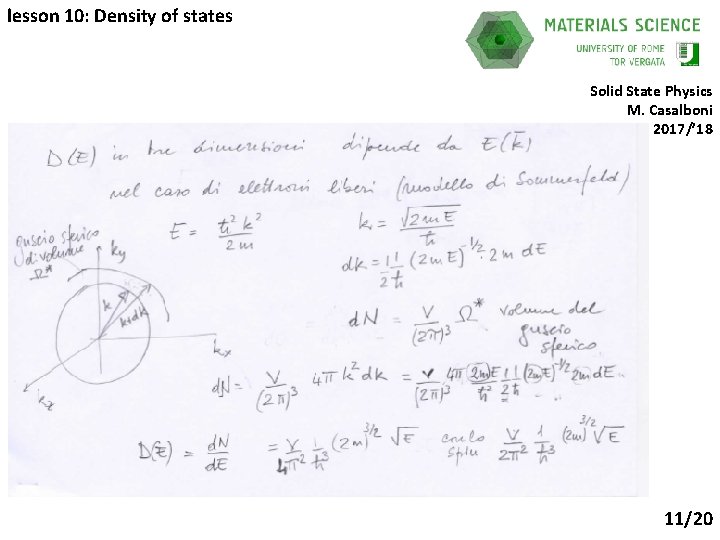 lesson 10: Density of states
MATERIALS SCIENCE
UNIVERSITY OF ROME
TOR VERGATA
Solid State Physics
M. Casalboni
2017/'18
D(E) in tre dimensioni dipende da E(k̄)
nel caso di elettroni liberi (modello di Sommerfeld)
guscio sferico
di volume
Ω*
ky
k
k+dk
kx
kz
E = ħ²k²/2m
k = √(2mE)/ħ
dk = 1/2 1/ħ (2mE)^-1/2 · 2m dE
dN = V/(2π)³ Ω* volume del
guscio
sferico
dN = V/(2π)³ 4π k² dk = V/(2π)³ 4π (2mE)/ħ² 1/2 1/ħ (2mE)^-1/2 2m dE
D(E) = dN/dE = V/4π² 1/ħ³ (2m)^3/2 √E con lo spin V/2π² 1/ħ³ (2m)^3/2 √E
11/20